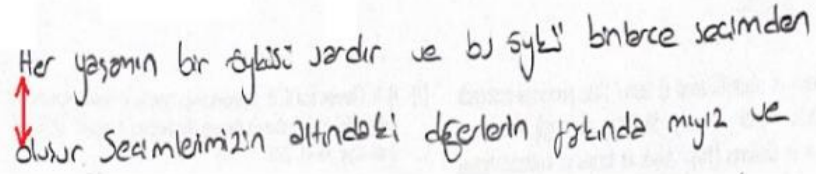 Her yaşamın bir öyküsü vardır ve bu öykü binlerce seçimden
oluşur. Seçimlerimizin altındaki değerlerin farkında mıyız ve